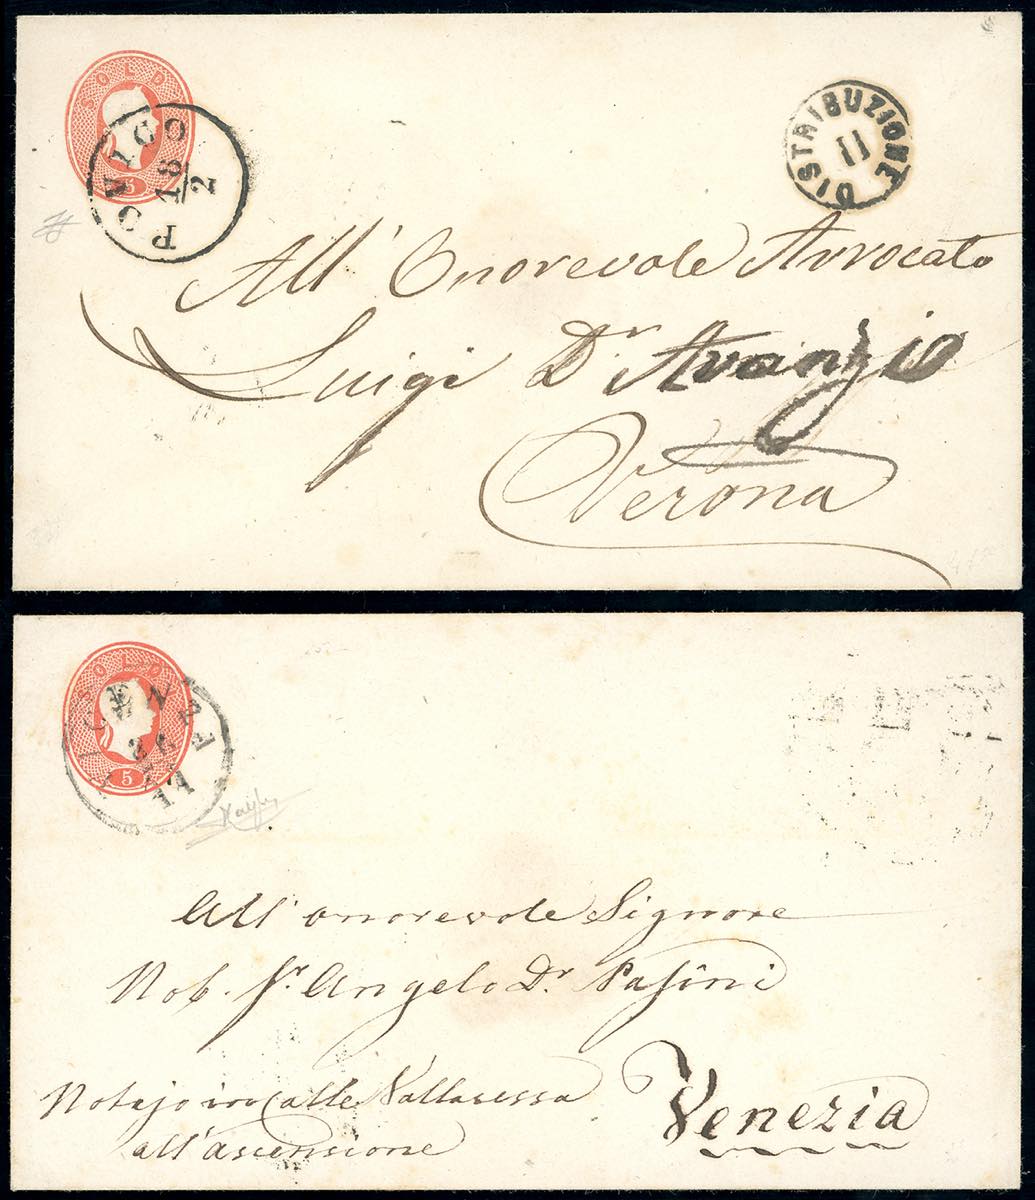 SOLDI
5
ROVIGO
18/2
DISTRIBUZIONE
II
All' Onorevole Avvocato
Luigi Dr Avanzio
Verona
SOLDI
5
VICENZA
All' onorevole Signore
Nob. Sr. Angelo Dr. Pasini
Notajo in Calle Vallaressa
all'ascensione
Venezia